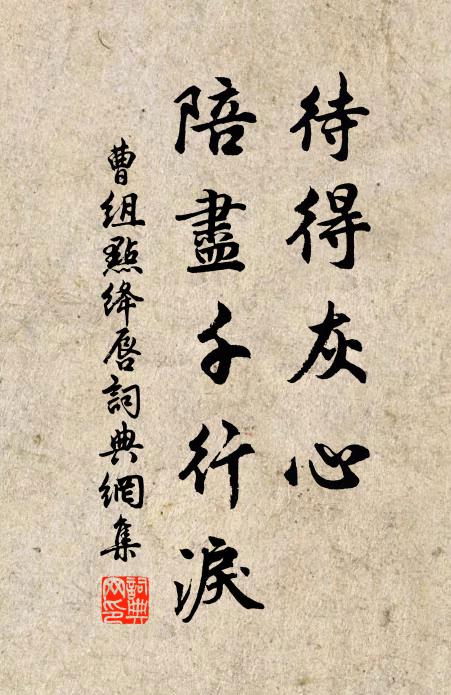 待得灰心
陪盡千行淚
曹組點絳唇詞典網集
詞典網印